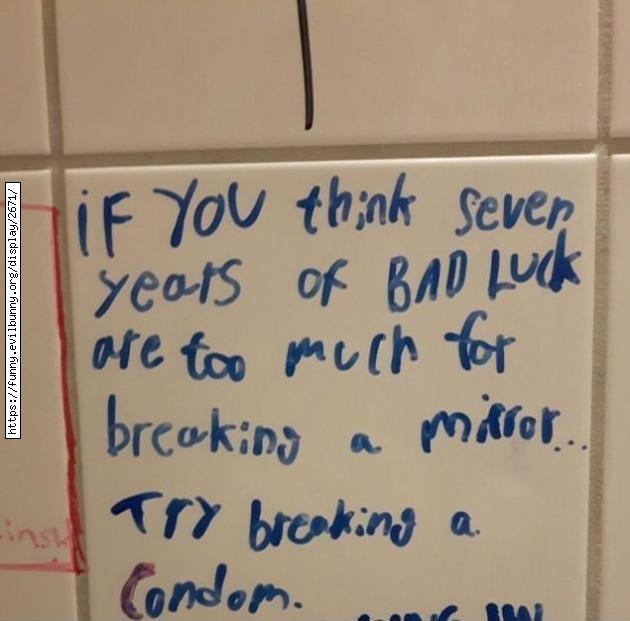 https://funny.evilbunny.org/display/2671/
iF YOU think seven
years of BAD LUCK
are too much for
breaking a mirror...
TrY breaking a
Condom.